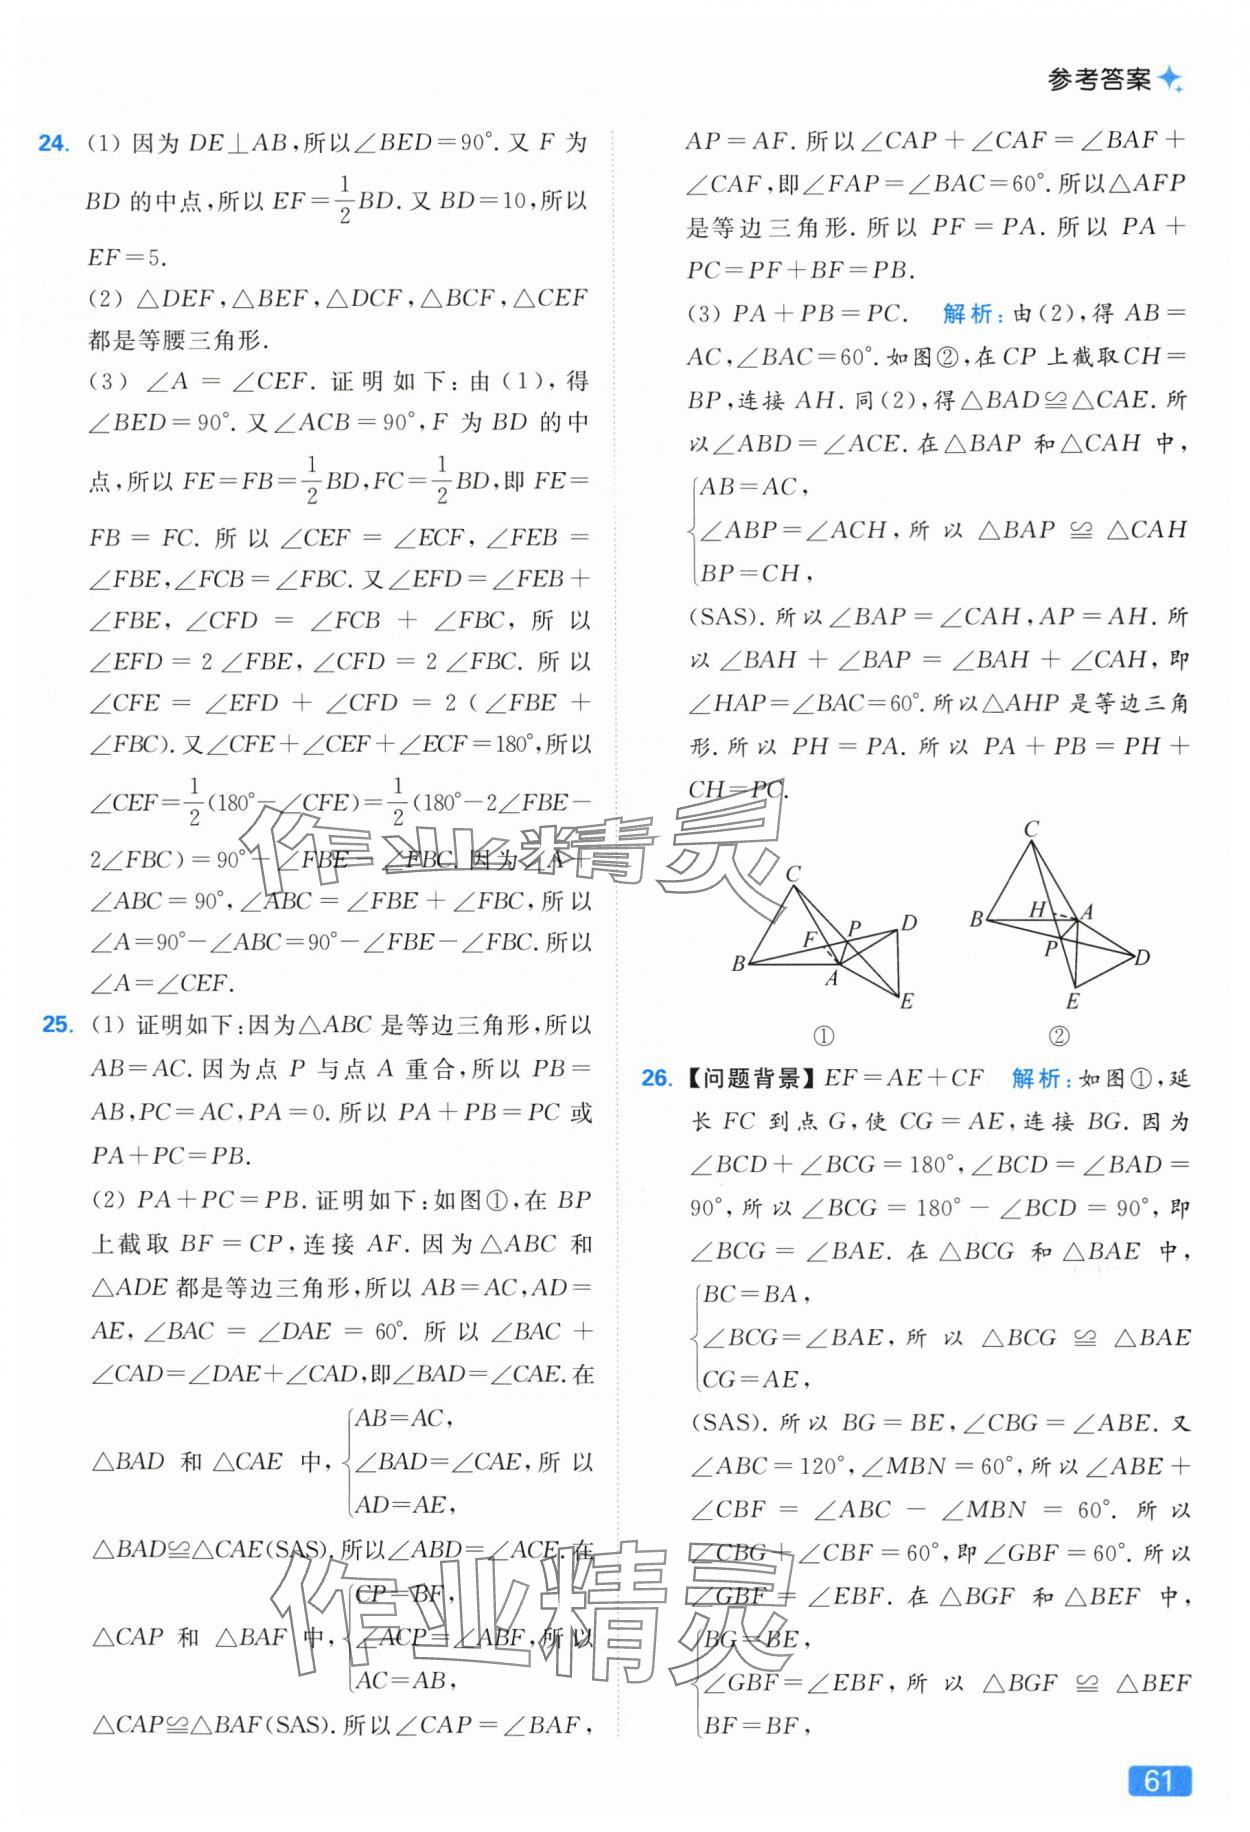 参考答案
24. (1) 因为 DE⊥AB,所以∠BED=90°.又 F 为
BD 的中点,所以 EF=1/2BD.又 BD=10,所以
EF=5.
(2) △DEF,△BEF,△DCF,△BCF,△CEF
都是等腰三角形.
(3) ∠A=∠CEF.证明如下:由(1),得
∠BED=90°.又∠ACB=90°,F 为 BD 的中
点,所以 FE=FB=1/2BD,FC=1/2BD,即 FE=
FB=FC.所以∠CEF=∠ECF,∠FEB=
∠FBE,∠FCB=∠FBC.又∠EFD=∠FEB+
∠FBE,∠CFD=∠FCB+∠FBC,所以
∠EFD=2∠FBE,∠CFD=2∠FBC.所以
∠CFE=∠EFD+∠CFD=2(∠FBE+
∠FBC).又∠CFE+∠CEF+∠ECF=180°,所以
∠CEF=1/2(180°-∠CFE)=1/2(180°-2∠FBE-
2∠FBC)=90°-∠FBE-∠FBC.因为∠A+
∠ABC=90°,∠ABC=∠FBE+∠FBC,所以
∠A=90°-∠ABC=90°-∠FBE-∠FBC.所以
∠A=∠CEF.
25. (1) 证明如下:因为△ABC 是等边三角形,所以
AB=AC.因为点 P 与点 A 重合,所以 PB=
AB,PC=AC,PA=0.所以 PA+PB=PC 或
PA+PC=PB.
(2) PA+PC=PB.证明如下:如图①,在 BP
上截取 BF=CP,连接 AF.因为△ABC 和
△ADE 都是等边三角形,所以 AB=AC,AD=
AE,∠BAC=∠DAE=60°.所以∠BAC+
∠CAD=∠DAE+∠CAD,即∠BAD=∠CAE.在
AB=AC,
△BAD 和△CAE 中,{∠BAD=∠CAE,所以
AD=AE,
△BAD≌△CAE(SAS).所以∠ABD=∠ACE.在
CP=BF,
△CAP 和△BAF 中,{∠ACP=∠ABF,所以
AC=AB,
△CAP≌△BAF(SAS).所以∠CAP=∠BAF,
AP=AF.所以∠CAP+∠CAF=∠BAF+
∠CAF,即∠FAP=∠BAC=60°.所以△AFP
是等边三角形.所以 PF=PA.所以 PA+
PC=PF+BF=PB.
(3) PA+PB=PC. 解析:由(2),得 AB=
AC,∠BAC=60°.如图②,在 CP 上截取CH=
BP,连接 AH.同(2),得△BAD≌△CAE.所
以∠ABD=∠ACE.在△BAP 和△CAH 中,
AB=AC,
{∠ABP=∠ACH,所以 △BAP≌△CAH
BP=CH,
(SAS).所以∠BAP=∠CAH,AP=AH.所
以∠BAH+∠BAP=∠BAH+∠CAH,即
∠HAP=∠BAC=60°.所以△AHP 是等边三角
形.所以 PH=PA.所以 PA+PB=PH+
CH=PC.
C
F
P
D
B
A
E
①
C
H
A
B
P
D
E
②
26. 【问题背景】EF=AE+CF 解析:如图①,延
长 FC 到点 G,使 CG=AE,连接 BG.因为
∠BCD+∠BCG=180°,∠BCD=∠BAD=
90°,所以∠BCG=180°-∠BCD=90°,即
∠BCG=∠BAE.在△BCG 和△BAE 中,
BC=BA,
{∠BCG=∠BAE,所以 △BCG≌△BAE
CG=AE,
(SAS).所以 BG=BE,∠CBG=∠ABE.又
∠ABC=120°,∠MBN=60°,所以∠ABE+
∠CBF=∠ABC-∠MBN=60°.所以
∠CBG+∠CBF=60°,即∠GBF=60°.所以
∠GBF=∠EBF.在△BGF 和△BEF 中,
BG=BE,
{∠GBF=∠EBF,所以 △BGF≌△BEF
BF=BF,
作业精灵
作业精灵
61